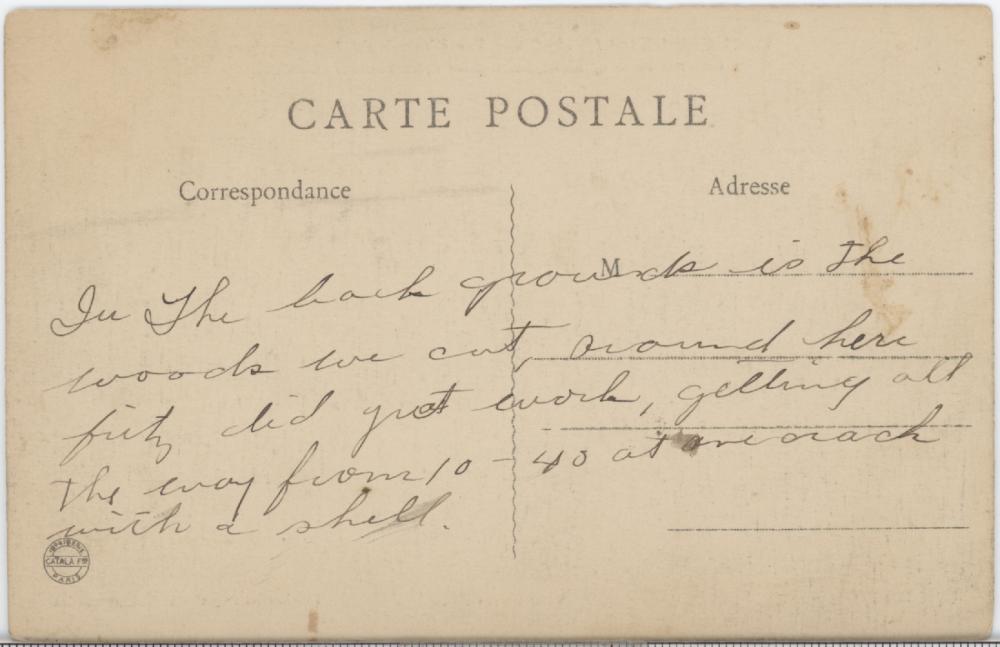 CARTE POSTALE
Correspondance
Adresse
M
In The back grounds is the
woods we cut, around here
fritz did great work, getting all
the way from 10 - 40 at one crack
with a shell.
IMPRIMERIE
CATALA FRES
PARIS